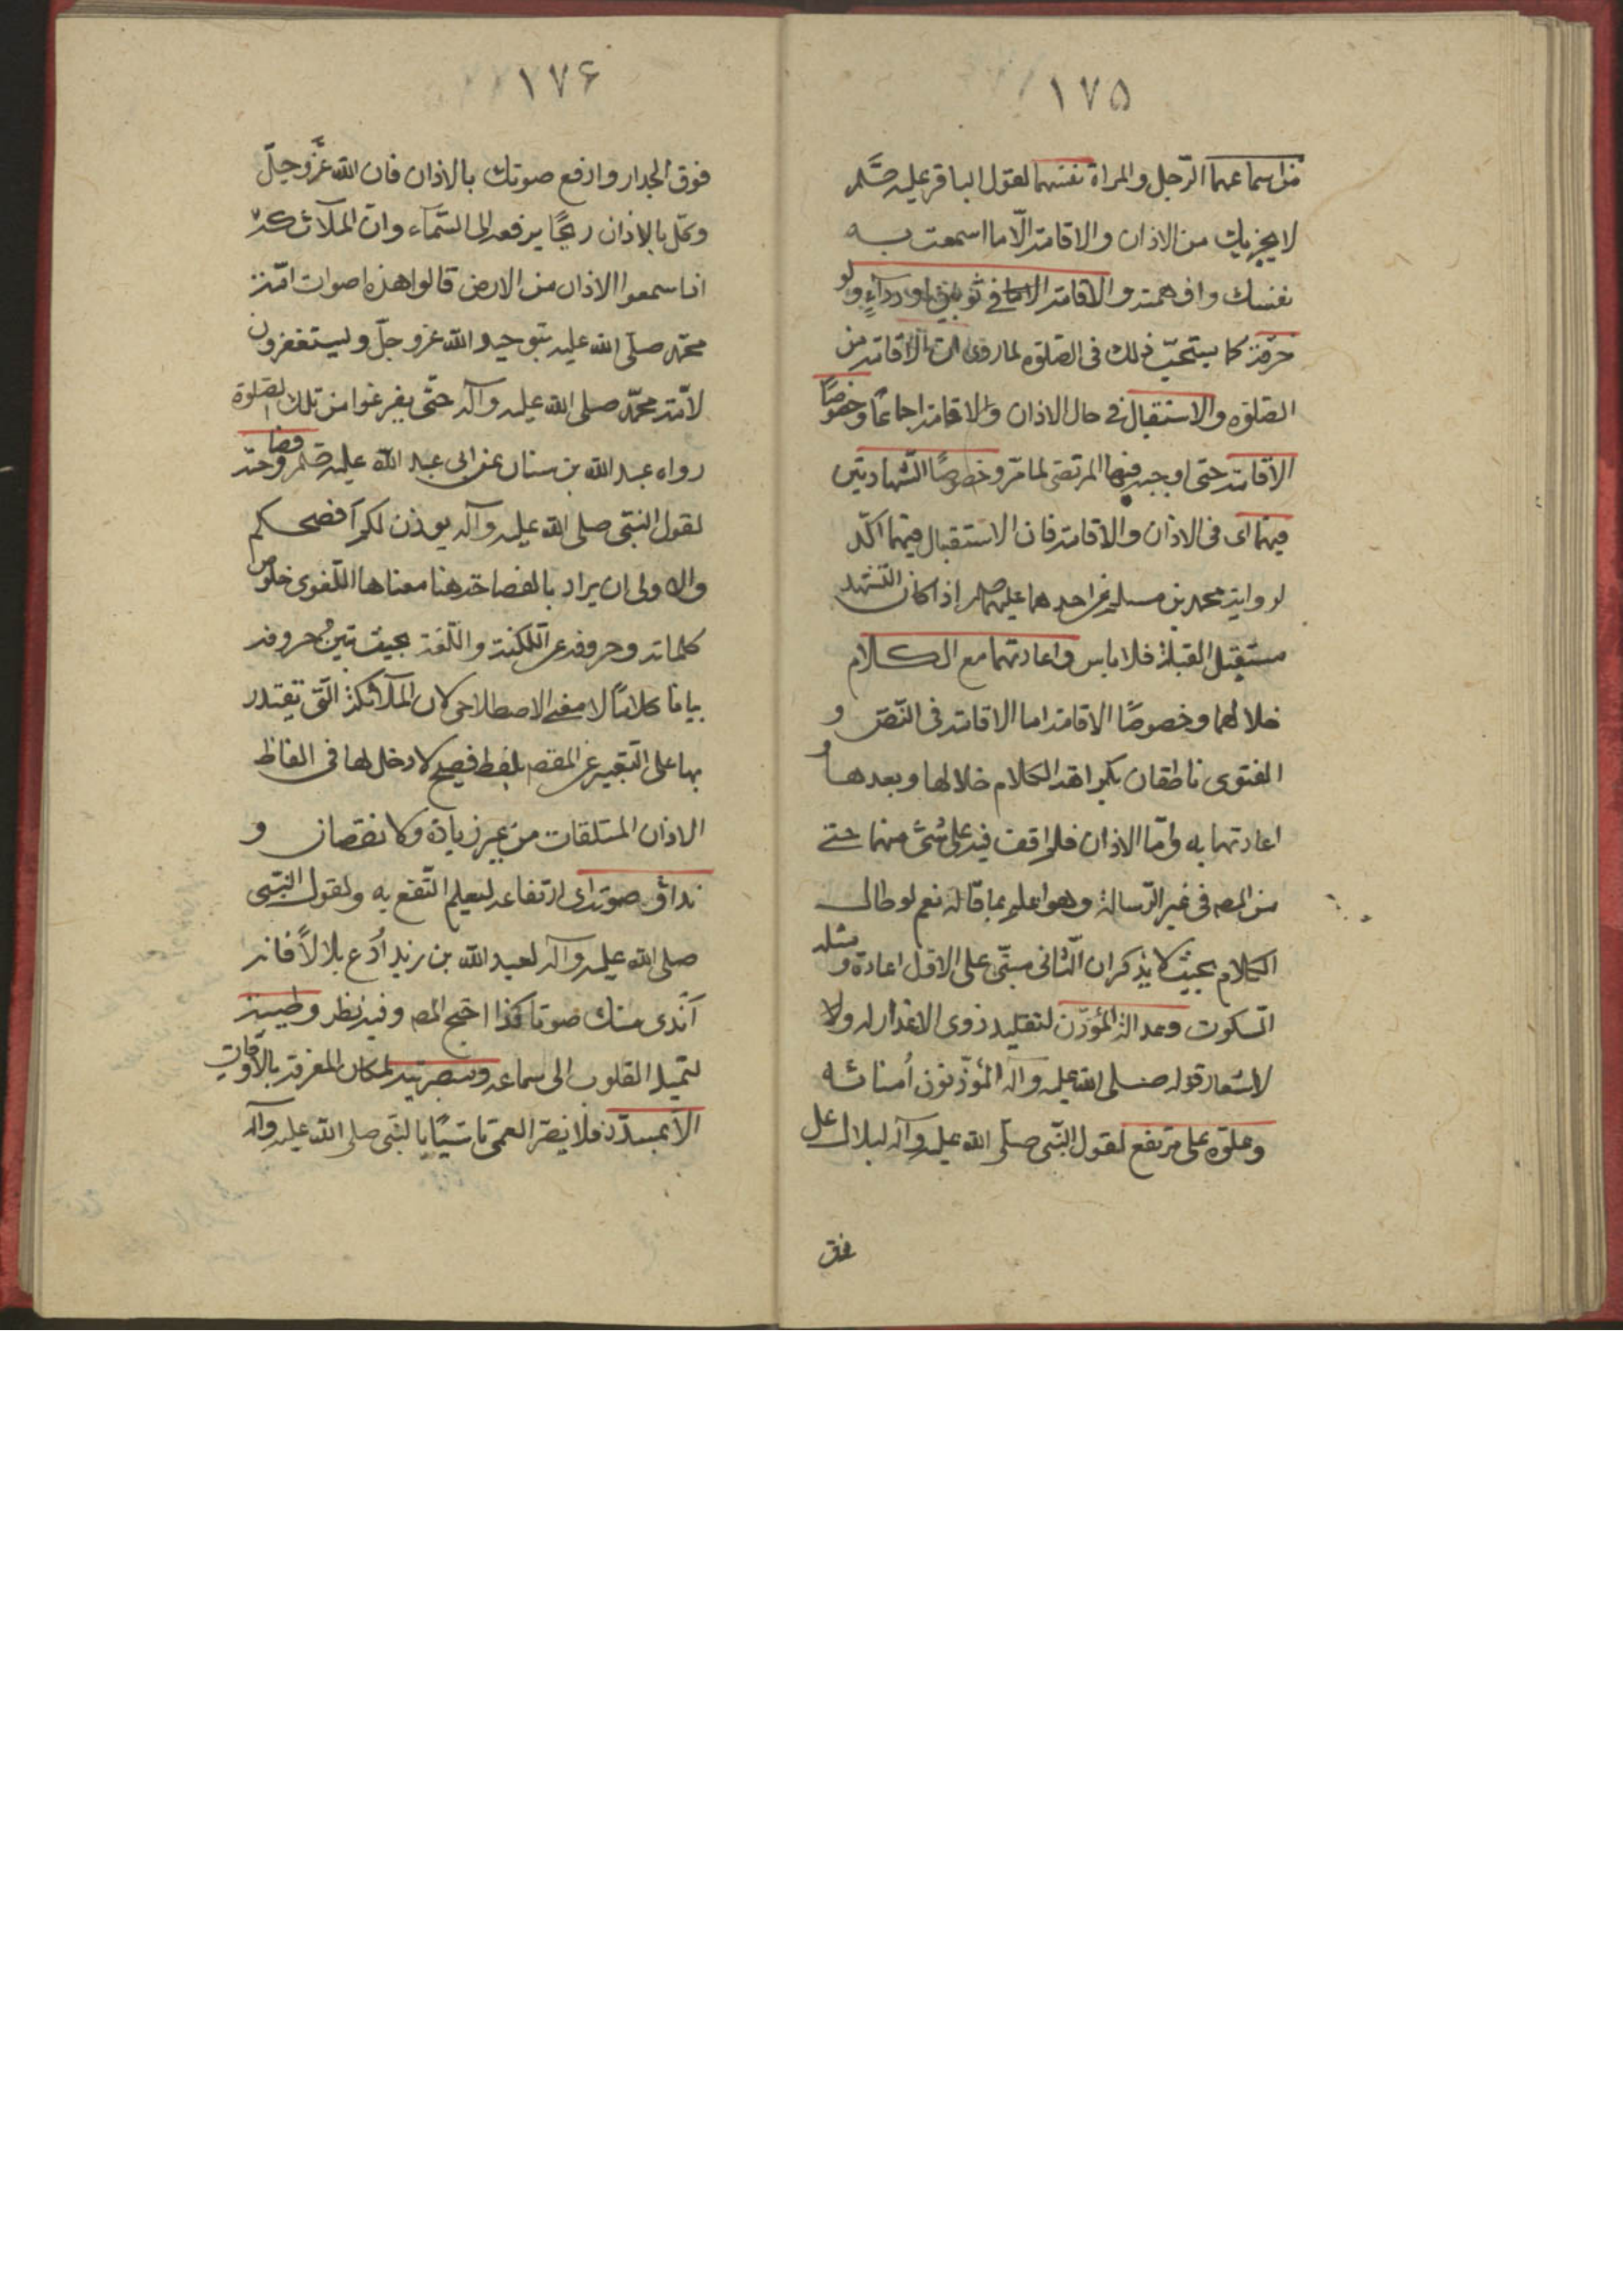 ١٧٥
من اسماعهما الرّجل والمراة نفسهما لقول الباقر عليه
لا يجزيك من الاذان والاقامة الّا ما اسمعت به
نفسك وافهمته والاقامة في ثوبين او رداءٍ ولو
خرقة كما يستحبّ ذلك فى الصّلوه لما روى انّ الاقامة من
الصّلوه والاستقبال فى حال الاذان والاقامة اجماعًا وخصوصًا
الاقامة حتى اوجبه فيها المرتضى لما مرّ وخصوصًا الشّهادتين
فيهما اى فى الاذان والاقامة فان الاستقبال فيهما اكّد
لرواية محمد بن مسلم عن احدهما عليهما اذا كان التّشهد
مستقبل القبلة فلا باس واعادتهما مع الكلام
خلالهما وخصوصًا الاقامة اما الاقامة فى النّص و
الفتوى ناطقان بكراهة الكلام خلالها وبعدها و
اعادتها به وامّا الاذان فلم اقف فيه على شئ منهما حتى
من المصـ فى غير الرّسالة وهو اعلم بما قاله نعم لو طال
الكلام بحيث لا يذكر ان الثّانى مبنّى على الاوّل اعاده ومثله
السّكوت وعدالة المؤذّن لتقليد ذوى الاعذار له ولا
لاشعار قوله صلى الله عليه وآله المؤذّنون اُمنائه
وعلوّه على مرتفع لقول النّبى صلّى الله عليه وآله لبلال عل
فوق
١٧۶
فوق الجدار وارفع صوتك بالاذان فان الله عزَّ وجلّ
وكّل بالاذان ريحًا يرفعه الى السّماء وانّ الملآئكة
اذا سمعوا الاذان من الارض قالوا هذه اصوات امّة
محمّد صلّى الله عليه بتوحيد الله عزوجلّ وليستغفرون
لامّة محمّد صلى الله عليه وآله حتّى يفرغوا من تلك الصلوة
رواه عبد الله بن سنان عن ابى عبد الله عليه وفصاحته
لقول النبّى صلى الله عليه وآله يوذن لكم أفصحكم
والاولى ان يراد بالفصاحة هنا معناها اللّغوى خلوص
كلماته وحروفه عن اللكنة واللّثغة بحيث تبين حروفه
بيانا كلامًا لا معنى الاصطلاحى لان الملآئكة الّتى تقتدر
بها على التّعبير عن المقصـ بلفظ فصيح لا دخل لها فى الفاظ
الاذان المتلقات من غير زيادة ولا نقصان و
نداوة صوته اى ارتفاعه ليعلم النّفع به ولقول النّبى
صلى الله عليه وآله لعبد الله بن زيد اُدع بلالاً فانه
أندى منك صوتا كذا احتج المصـ وفيه نظر وطيبته
لتميل القلوب الى سماعه وبصيرته لمكان المعرفة بالاوقات
الّا بمسدّد فلا يضرّ العمى تاسّيًا بالنّبى صلى الله عليه وآله